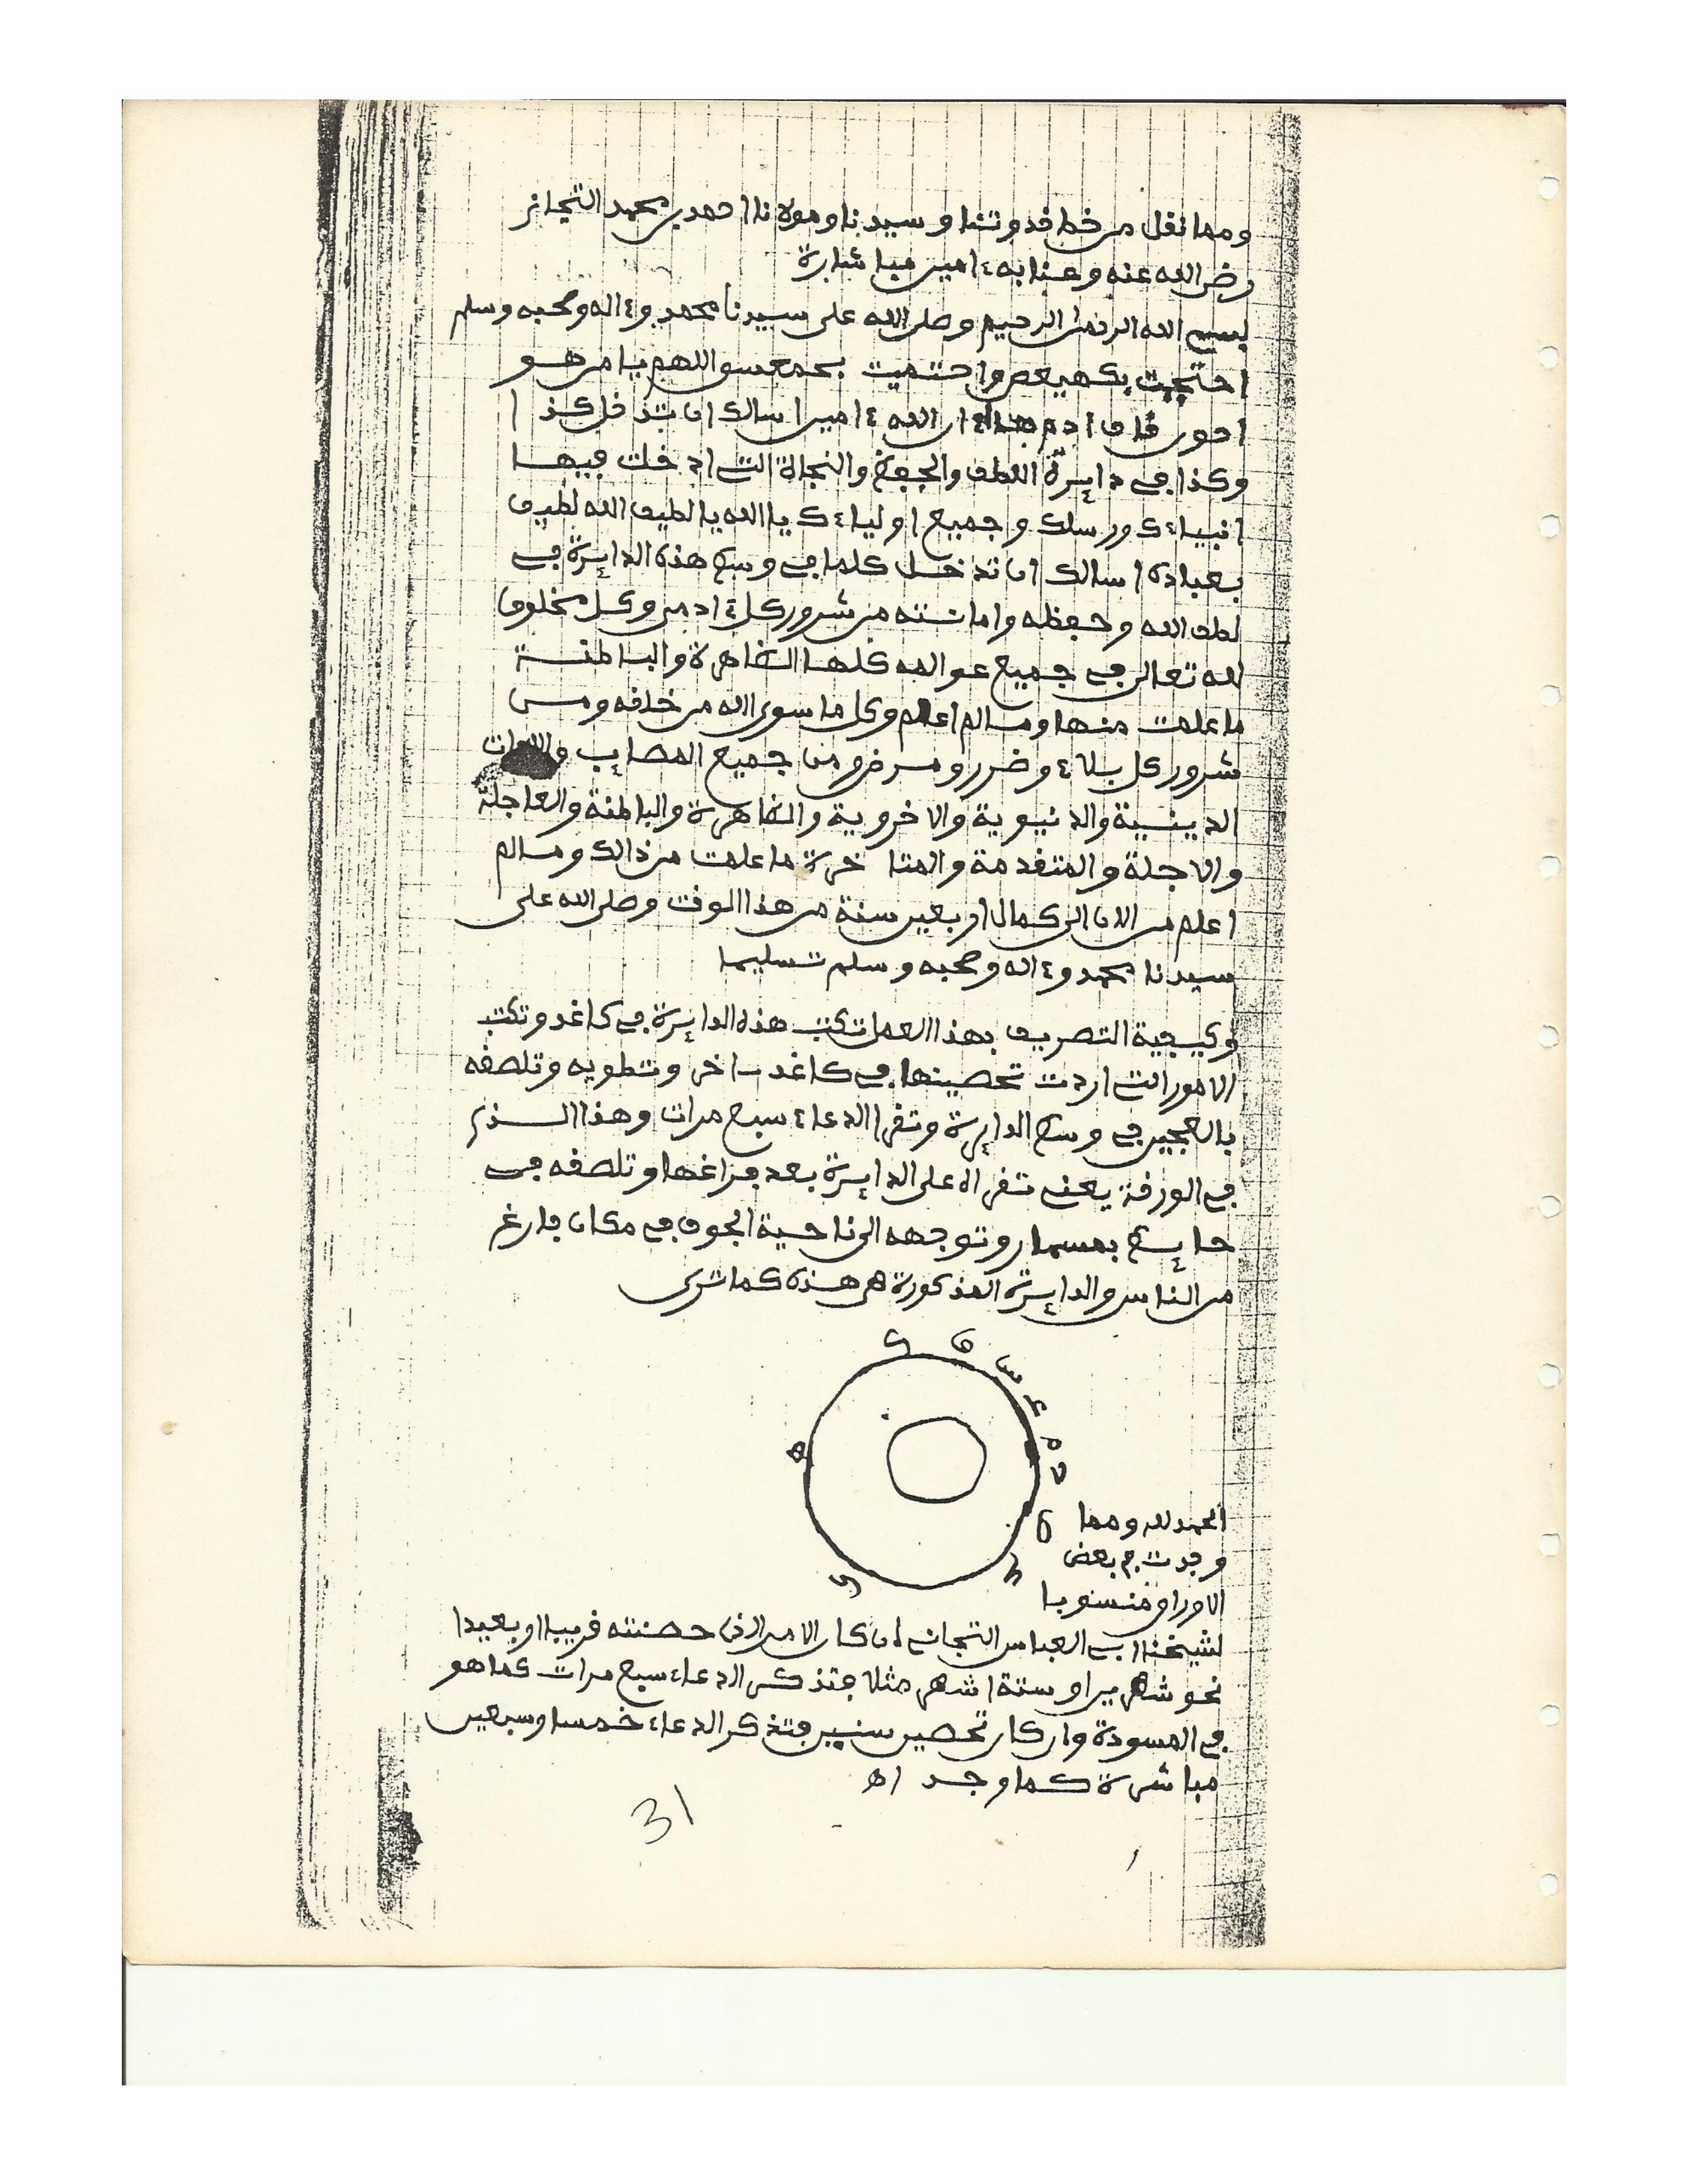 ومما نقل من خط قدوتنا وسيدنا ومولانا احمد بن محمد التجاني
رضي الله عنه وعنا به ءامين مباشارة
بسم الله الرحمن الرحيم وصلى الله على سيدنا محمد وءاله وصحبه وسلم
احتجبت بكهيعص واحتميت بحمعسق اللهم يا من هو
احون قاف ادم هاء ءامين اسالك ان تدخل كذا
وكذا في دايرة اللطف والحفظ والنجاة التي ادخلت فيها
انبياءك ورسلك وجميع اولياءك يا الله يا لطيف الله لطيف
بعباده اسالك ان تدخل كلما في وسط هذه الدايرة في
لطف الله وحفظه وامانته من شرور كل ءادمي وكل مخلوق
لله تعالى في جميع عوالمه كلها الظاهرة والباطنة
ما علمت منها وما لم اعلم وكل ما سوى الله من خلقه ومن
شرور كل بلاء وضرر ومرض ومن جميع المصايب
الدينية والدنيوية والاخروية والظاهرة والباطنة والعاجلة
والاجلة والمتقدمة والمتاخرة ما علمت من ذالك وما لم
اعلم من الان الى كمال اربعين سنة من هذا الوقت وصلى الله على
سيدنا محمد وءاله وصحبه وسلم تسليما
وكيفية التصريف بهذا العمل تكتب هذه الدايرة في كاغد وتكتب
الامور التي اردت تحصينها في كاغد ءاخر وتطويه وتلصقه
بالعجين في وسط الدايرة وتقرا الدعاء سبع مرات وهذا الذي
في الورقة يعني تقراه على الدايرة بعد فراغها وتلصقه في
حايط بمسمار وتوجهه الى ناحية الجوف في مكان فارغ
من الناس والدايرة المذكورة هي هذه كما ترى
ق
س
ع
م
ح
ص
ع
ي
ه
ك
الحمد لله ومما
وجدت في بعض
الاوراق منسوبا
لشيخنا ابي العباس التجاني ان كان الامر الذي حصنته قريبا او بعيدا
نحو شهرين او ستة اشهر مثلا فتذكر الدعاء سبع مرات كما هو
في المسودة وان كان تحصين سنين فتذكر الدعاء خمسا وسبعين
مباشرة كما وجد اه
31